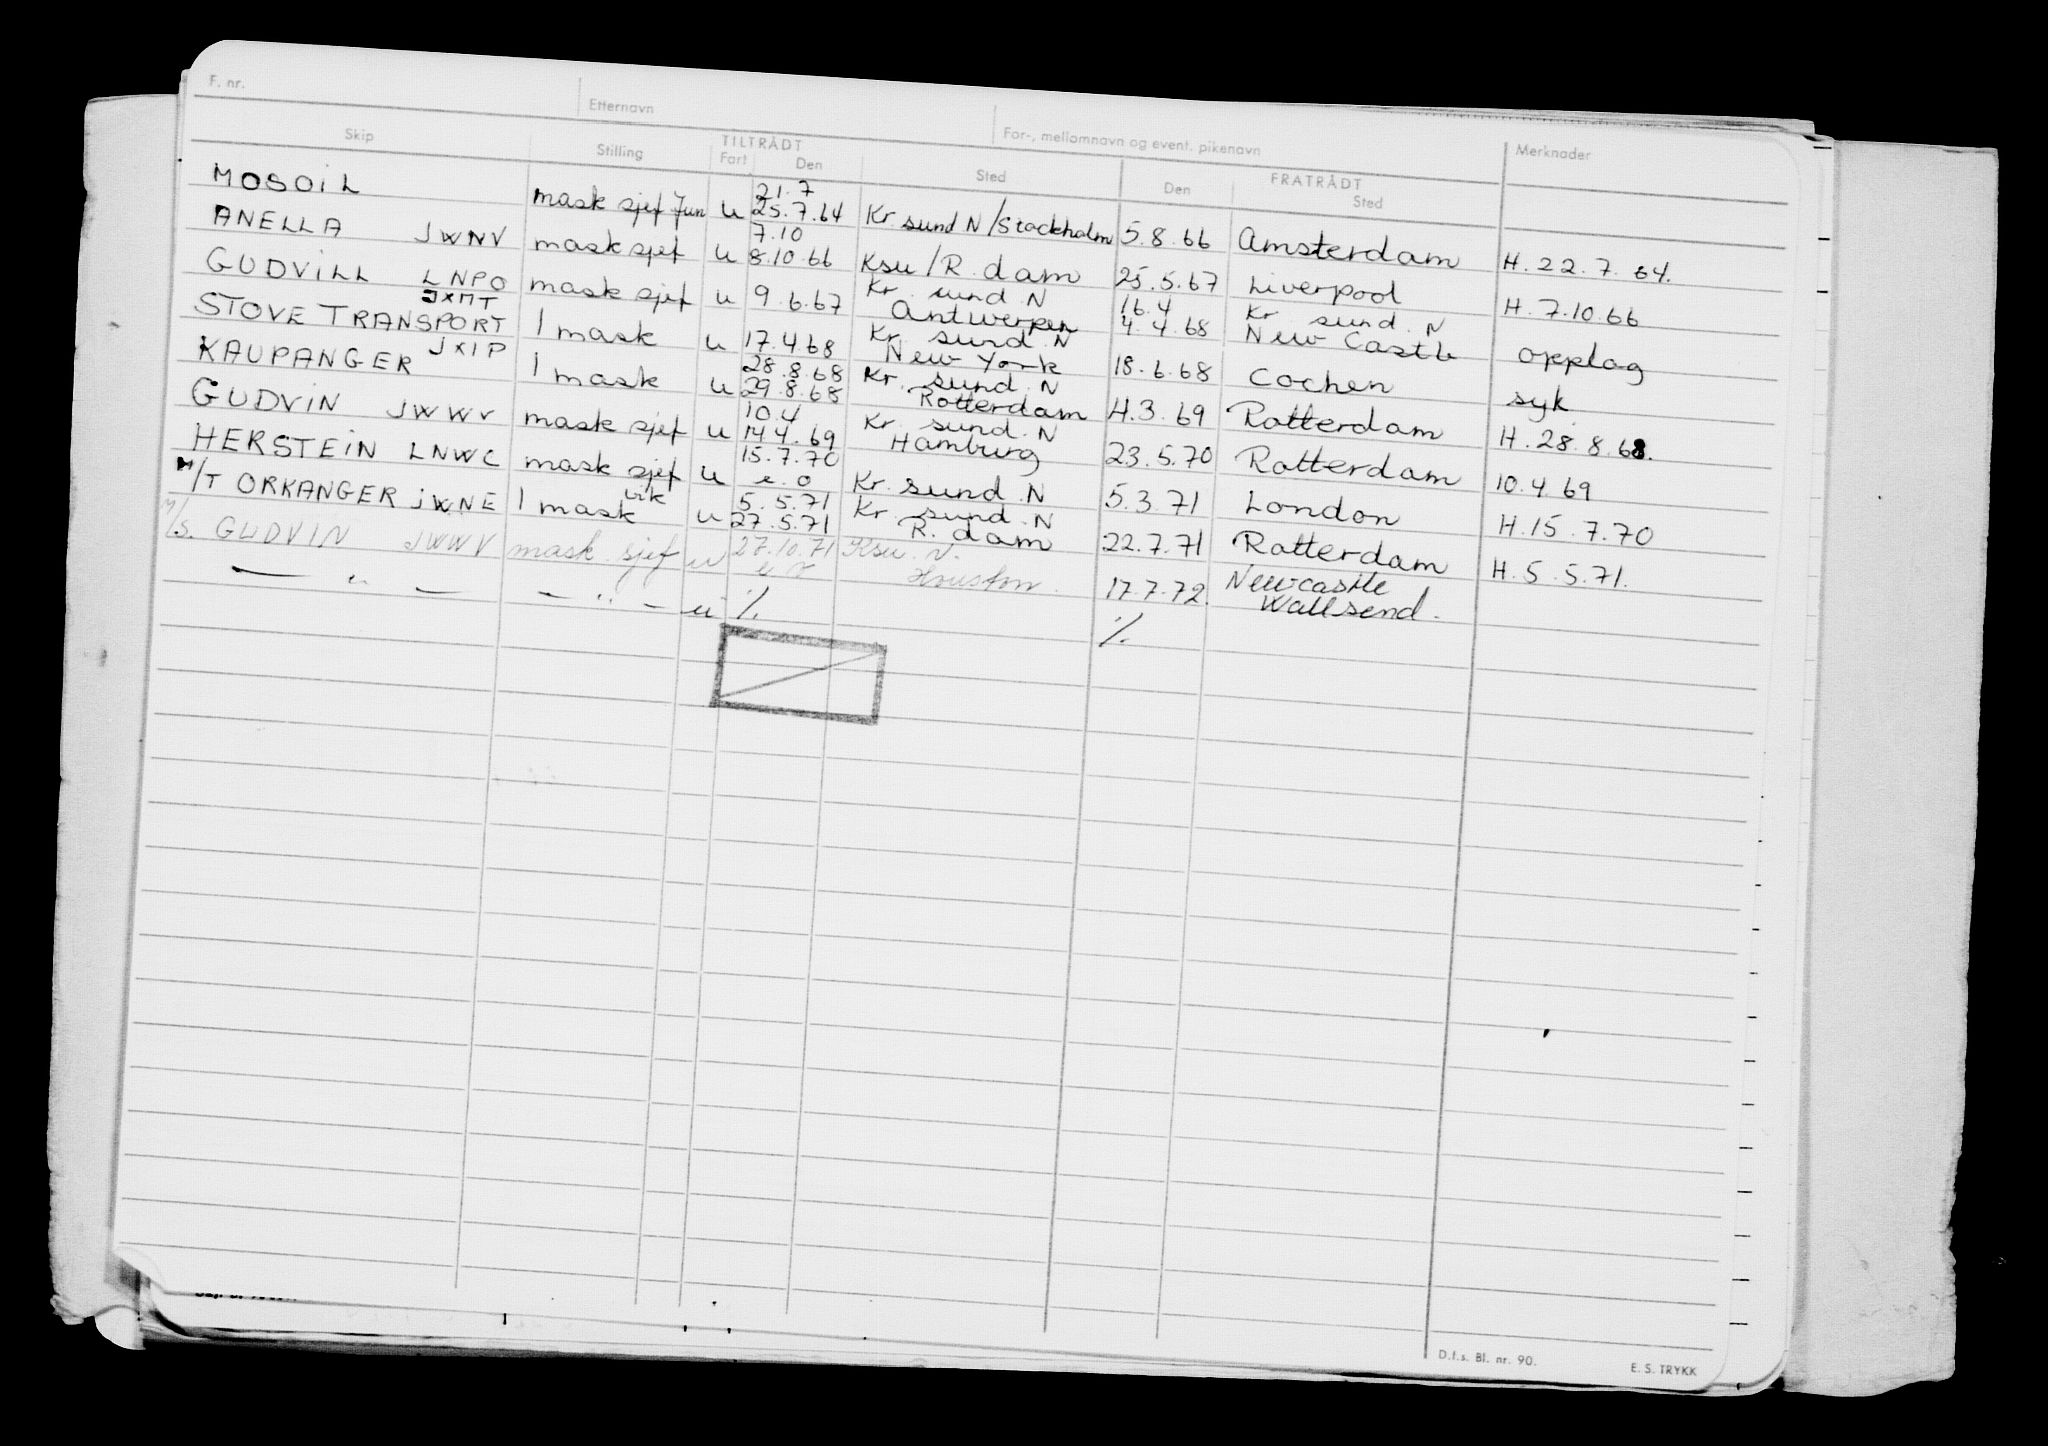 F. nr. Etternavn For-, mellomnavn og event. pikenavn Merknader
Skip Stilling TILTRÅDT Fart Den Sted FRATRÅDT Den Sted
MOSOIL mask sjef Jun u 21.7 25.7.64 Kr sund N/Stockholm 5.8.66 Amsterdam H. 22.7.64.
ANELLA JWNV mask sjef u 7.10 8.10.66 Ksu/R.dam 25.5.67 Liverpool H. 7.10.66
GUDVILL LNPO mask sjef u 9.6.67 Kr. sund. N Antwerpen 16.4 4.4.68 Kr. sund. N New Castle opplag
STOVE TRANSPORT JXMT 1 mask u 17.4.68 Kr. sund. N New York 18.6.68 Cochen syk
KAUPANGER JXIP 1 mask u 28.8.68 29.8.68 Kr. sund. N Rotterdam 4.3.69 Rotterdam H. 28.8.68.
GUDVIN JWWV mask sjef u 10.4 14.4.69 Kr. sund. N Hamburg 23.5.70 Rotterdam 10.4.69
HERSTEIN LNWC mask sjef u 15.7.70 e.o Kr. sund. N 5.3.71 London H. 15.7.70
M/T ORKANGER JWNE 1 mask vik u 5.5.71 27.5.71 Kr. sund. N R.dam 22.7.71 Rotterdam H. 5.5.71.
M/S. GUDVIN JWWV mask. sjef u 27.10.71 e o Ksu. N. Houston. 17.7.72. Newcastle Wallsend.
— " — — " — u % %
D.f.s. Bl. nr. 90. E. S. TRYKK